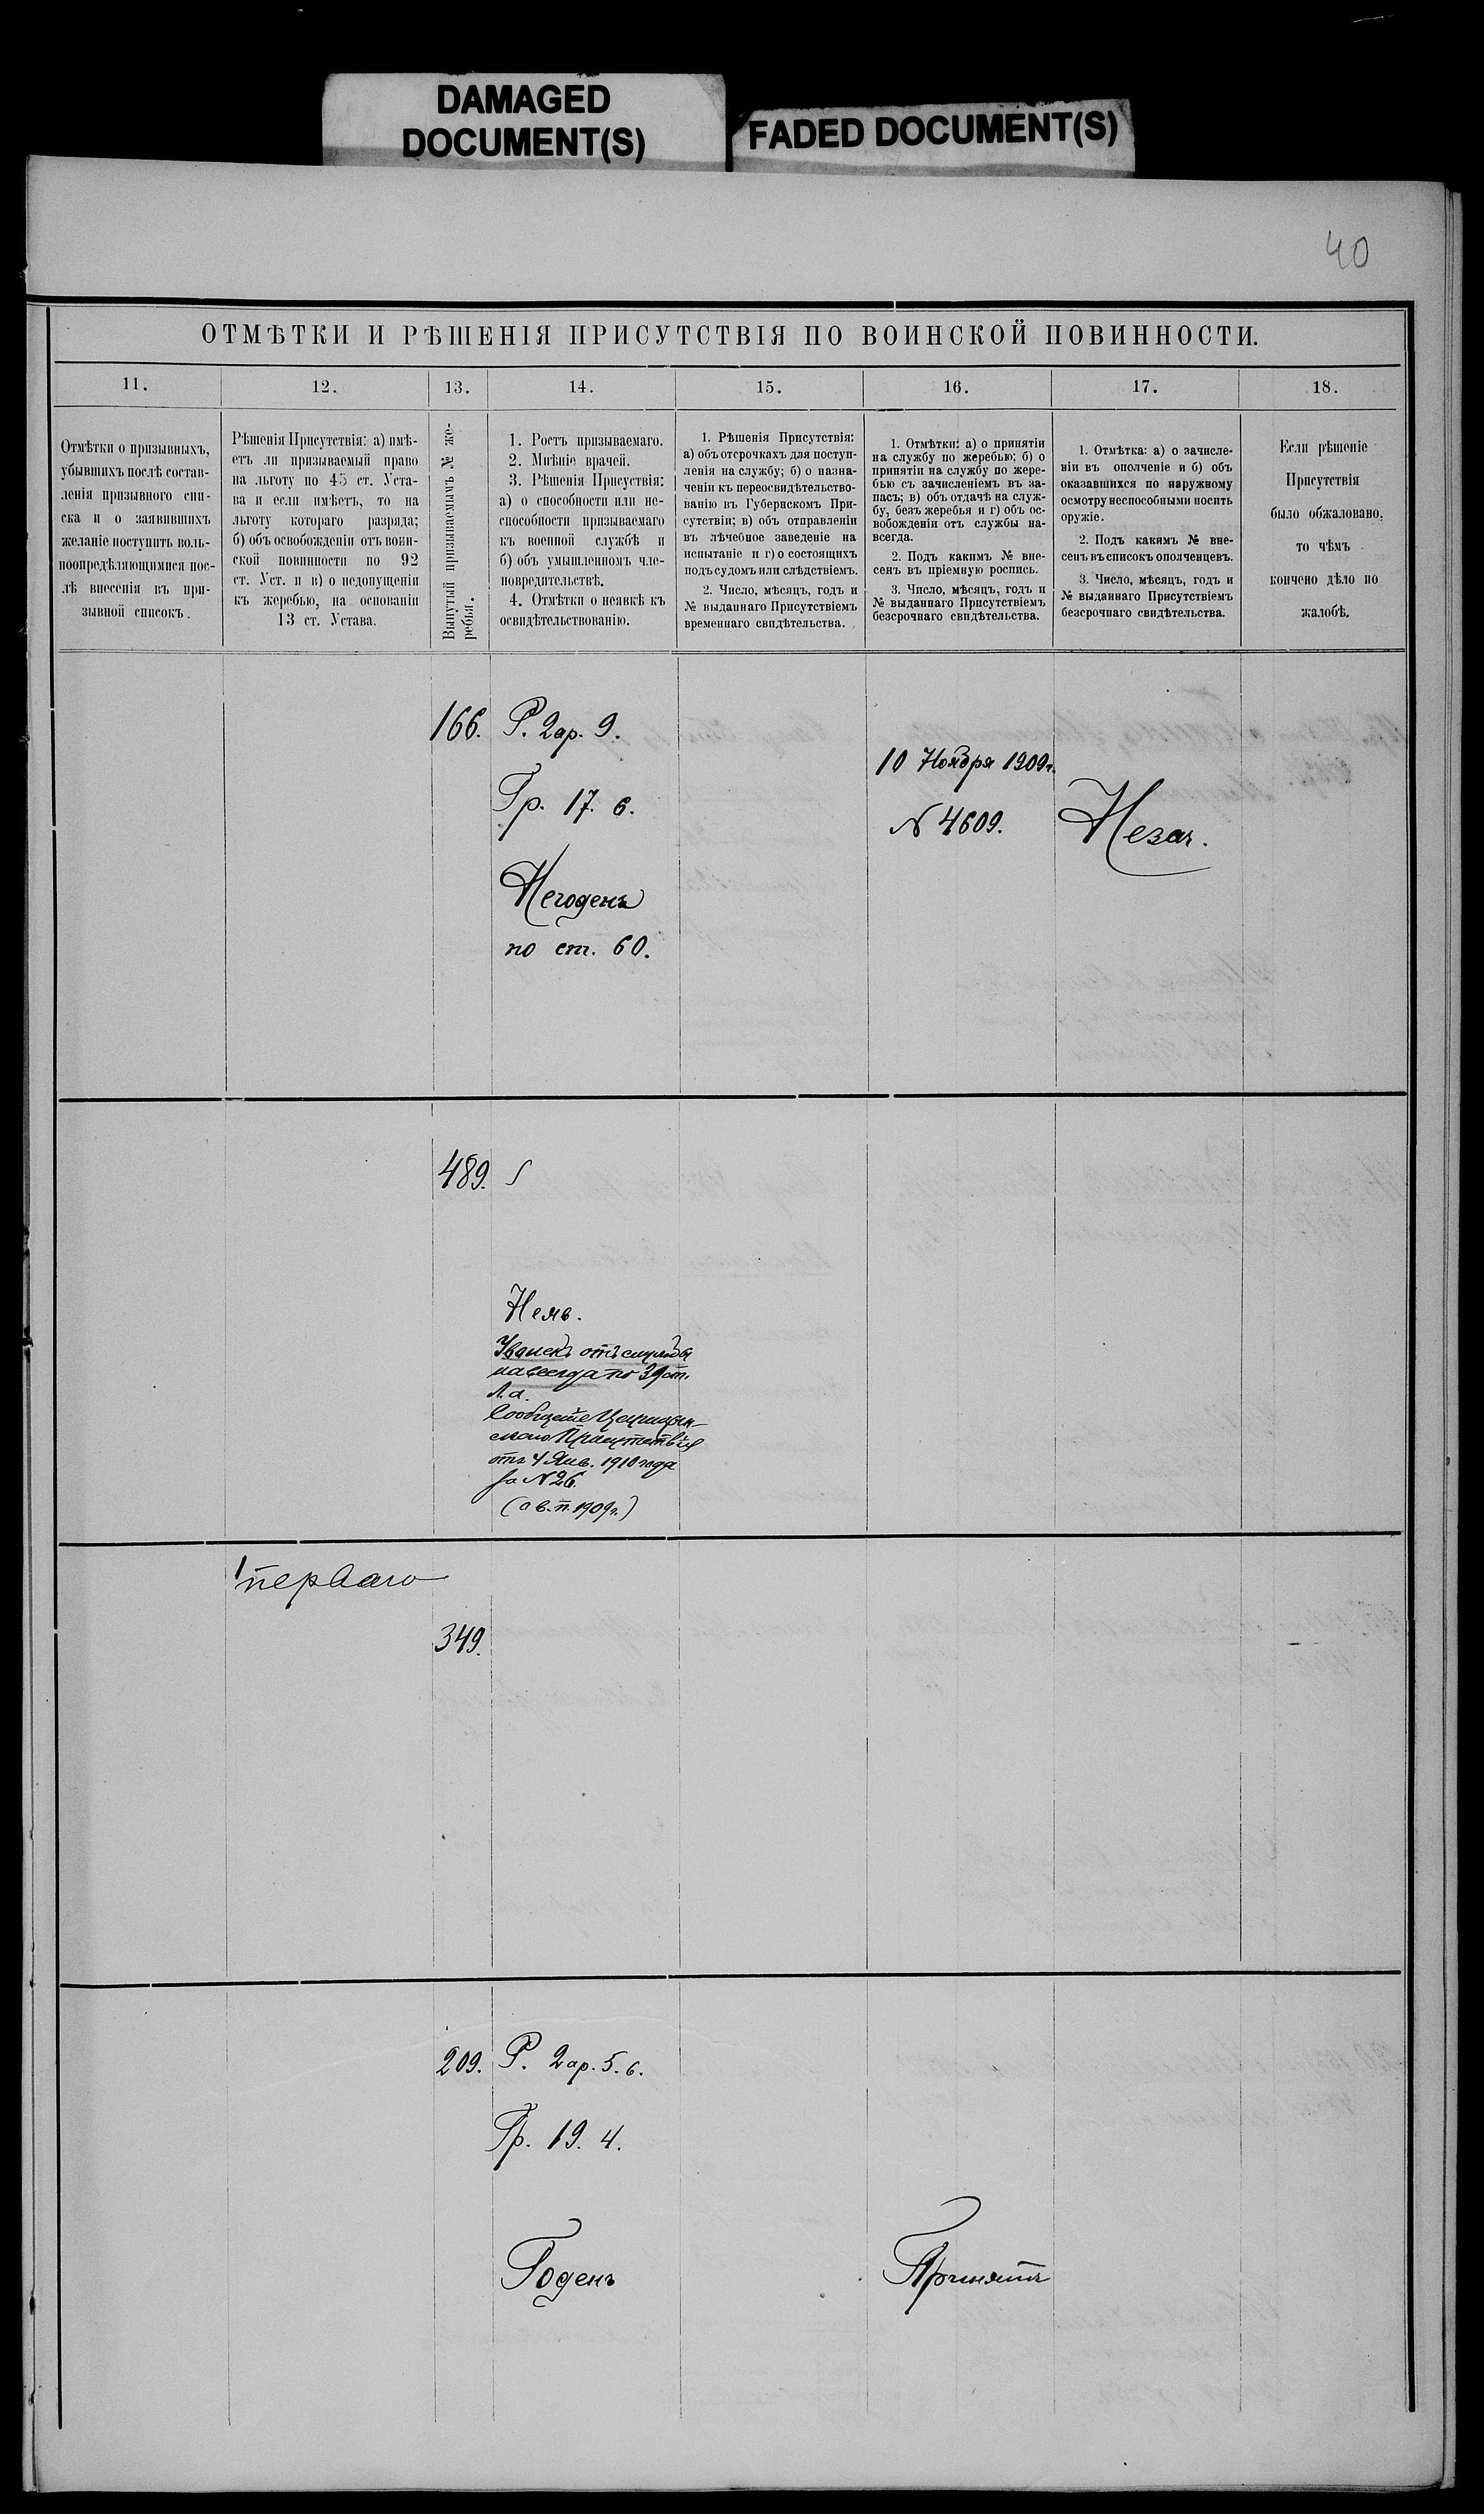 DAMAGED
DOCUMENT(S)
FADED DOCUMENT(S)
40
ОТМѢТКИ И РѢШЕНІЯ ПРИСУТСТВІЯ ПО ВОИНСКОЙ ПОВИННОСТИ.
11.
12.
13.
14.
15.
16.
17.
18.
Отмѣтки о призывныхъ,
убывшихъ послѣ состав-
ленія призывного спи-
ска и о заявившихъ
желаніе поступить воль-
ноопредѣляющимися пос-
лѣ внесенія въ при-
зывной списокъ.
Рѣшенія Присутствія: а) имѣ-
етъ ли призываемый право
на льготу по 45 ст. Уста-
ва и если имѣетъ, то на
льготу котораго разряда;
б) объ освобожденіи отъ воин-
ской повинности по 92
ст. Уст. и в) о недопущеніи
къ жеребью, на основаніи
13 ст. Устава.
Вынутый призываемымъ № же-
ребья.
1. Ростъ призываемаго.
2. Мнѣніе врачей.
3. Рѣшенія Присуствія:
а) о способности или не-
способности призываемаго
къ военной службѣ и
б) объ умышленномъ чле-
новредительствѣ.
4. Отмѣтки о неявкѣ къ
освидѣтельствованію.
1. Рѣшенія Присутствія:
а) объ отсрочкахъ для поступ-
ленія на службу; б) о назна-
ченіи къ переосвидѣтельство-
ванію въ Губернскомъ При-
сутствіи; в) объ отправленіи
въ лѣчебное заведеніе на
испытаніе и г) о состоящихъ
подъ судомъ или слѣдствіемъ.
2. Число, мѣсяцъ, годъ и
№ выданнаго Присутствіемъ
временнаго свидѣтельства.
1. Отмѣтки: а) о принятіи
на службу по жеребью; б) о
принятіи на службу по жере-
бью съ зачисленіемъ въ за-
пасъ; в) объ отдачѣ на служ-
бу, безъ жеребья и г) объ ос-
вобожденіи отъ службы на-
всегда.
2. Подъ какимъ № вне-
сенъ въ пріемную роспись.
3. Число, мѣсяцъ, годъ и
№ выданнаго Присутствіемъ
безсрочнаго свидѣтельства.
1. Отмѣтка: а) о зачисле-
ніи въ ополченіе и б) объ
оказавшихся по наружному
осмотру неспособными носить
оружіе.
2. Подъ какимъ № вне-
сенъ въ списокъ ополченцевъ.
3. Число, мѣсяцъ, годъ и
№ выданнаго Присутствіемъ
безсрочнаго свидѣтельства.
Если рѣшеніе
Присутствія
было обжаловано,
то чѣмъ
кончено дѣло по
жалобѣ.
166.
Р. 2 ар. 9.
Гр. 17. 6.
Негоденъ
по ст. 60.
10 Ноября 1909г.
N 4609.
Незач.
489.
Неяв.
отъ службы
навсегда по 39 ст.
Л. а.
Сообщеніе Царицын-
скаго Присутствія
отъ 4 Янв. 1910 года
за N 26.
(о в. п. 1909г.)
1 перваго
349.
209.
Р. 2 ар. 5. 6.
Гр. 19. 4.
Годенъ
Принятъ